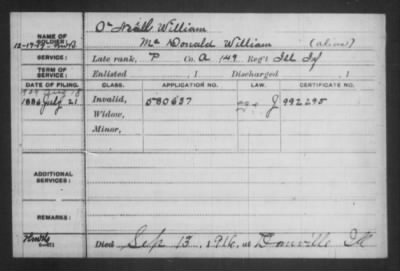 NAME OF SOLDIER: O'Neill William
12-17-19 McDonald William (alias)
SERVICE: Late rank, P Co. A 149 Reg't Ill Inf
TERM OF SERVICE: Enlisted , 1 Discharged , 1
DATE OF FILING. CLASS. APPLICATION NO. LAW. CERTIFICATE NO.
1886 July 21 Invalid, 580637 J 992295
Widow,
Minor,
ADDITIONAL SERVICES:
REMARKS:
Died Sep 13, 1916, at Danville Ill